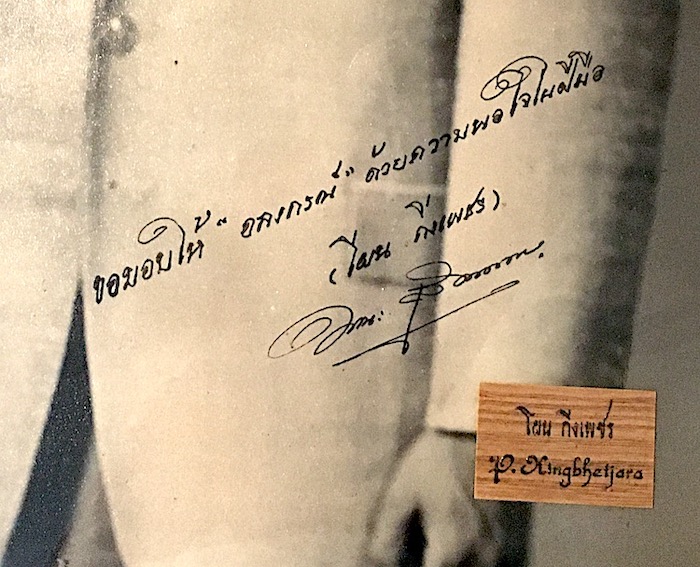 ขอมอบให้ "อลงกรณ์" ด้วยความพอใจในฝีมือ
(โผน กิ่งเพชร)
โผน กิ่งเพชร
P. Kingbhetjara